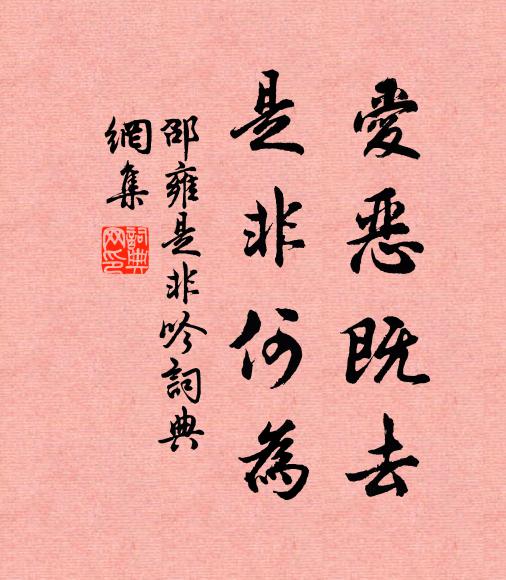 愛惡既去
是非何為
邵雍是非吟詞典
網集
詞典
网印